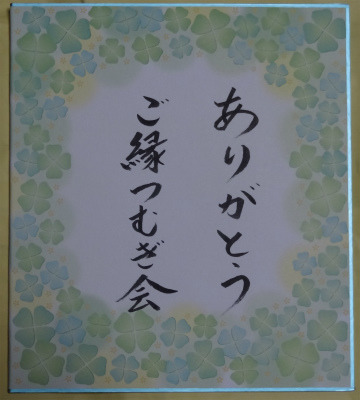 ありがとう
ご縁つむぎ会